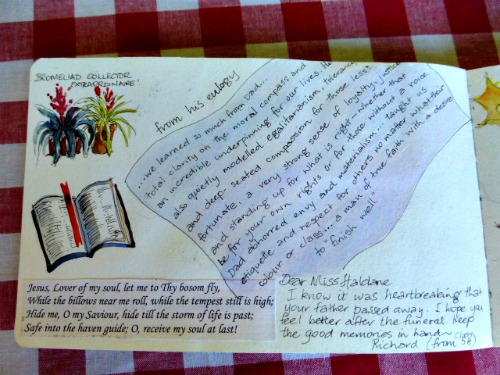 BROMELIAD COLLECTOR
EXTRAORDINAIRE'
from his eulogy
...we learned so much from Dad...
total clarity on the moral compass and
an incredible underpinning for our lives. He
also quietly modelled egalitarianism, tolerance
and deep seated compassion for those less
fortunate. a very strong sense of loyalty,
and standing up for what is right - whether that
be for your own rights or for those without a voice
Dad abhorred envy and materialism. Taught us
etiquette and respect for others no matter what
colour or class... a man of true faith with a desire
to "finish well"
Jesus, Lover of my soul, let me to Thy bosom fly,
While the billows near me roll, while the tempest still is high;
Hide me, O my Saviour, hide till the storm of life is past;
Safe into the haven guide; O, receive my soul at last!
Dear Miss Haldane
I know it was heartbreaking that
your father passed away. I hope you
feel better after the funeral. Keep
the good memories in hand~
Richard (from 5B)